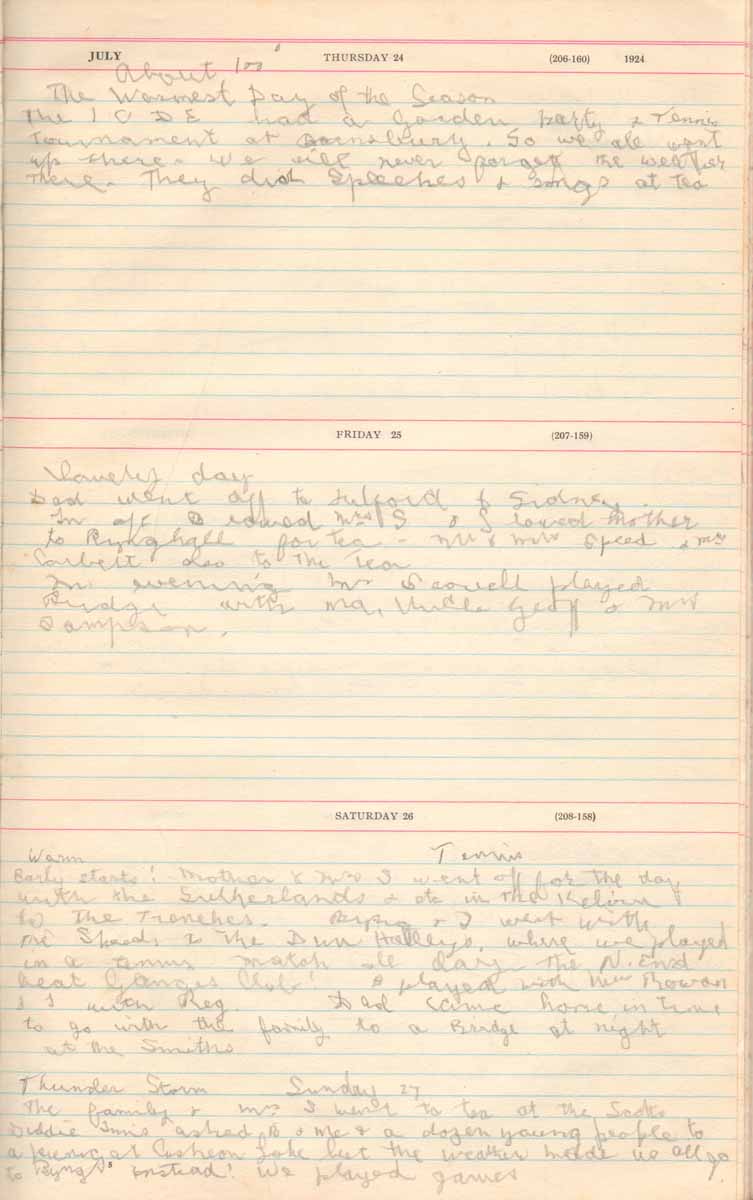 JULY THURSDAY 24 (206-160) 1924
About 100°
The Warmest Day of the Season
The I O D E had a Garden party & Tennis
Tournament at Barnsbury. So we all went
up there. We will never forget the weather
there. They did Speeches & songs at tea
FRIDAY 25 (207-159)
Lovely day
Dad went off to Fulford & Sidney.
In aft B rowed Mrs S & I rowed Mother
to for tea - Mr & Mrs Speed & Mrs
Corbett also to the Tea
In evening Mr Scovell played
Bridge with Ma, Uncle Geoff & Mrs
Sampson.
SATURDAY 26 (208-158)
Warm Tennis
Early starts! Mother & Mrs S went off for the day
with the Sutherlands & etc in the Kelvin
to The Trenches. Byng & I went with
the Speeds to The Halleys, where we played
in a tennis match all day The N. End
beat Ganges Club! B played with Miss Rowan
& I with Reg. Dad came home in time
to go with the family to a Bridge at night
at the Smiths
Thunder Storm Sunday 27
The family & Mrs S went to tea at the Scotts
Innis asked B & me & a dozen young people to
a picnic at Cusheon Lake but the weather made us all go
to Byngs instead! We played games